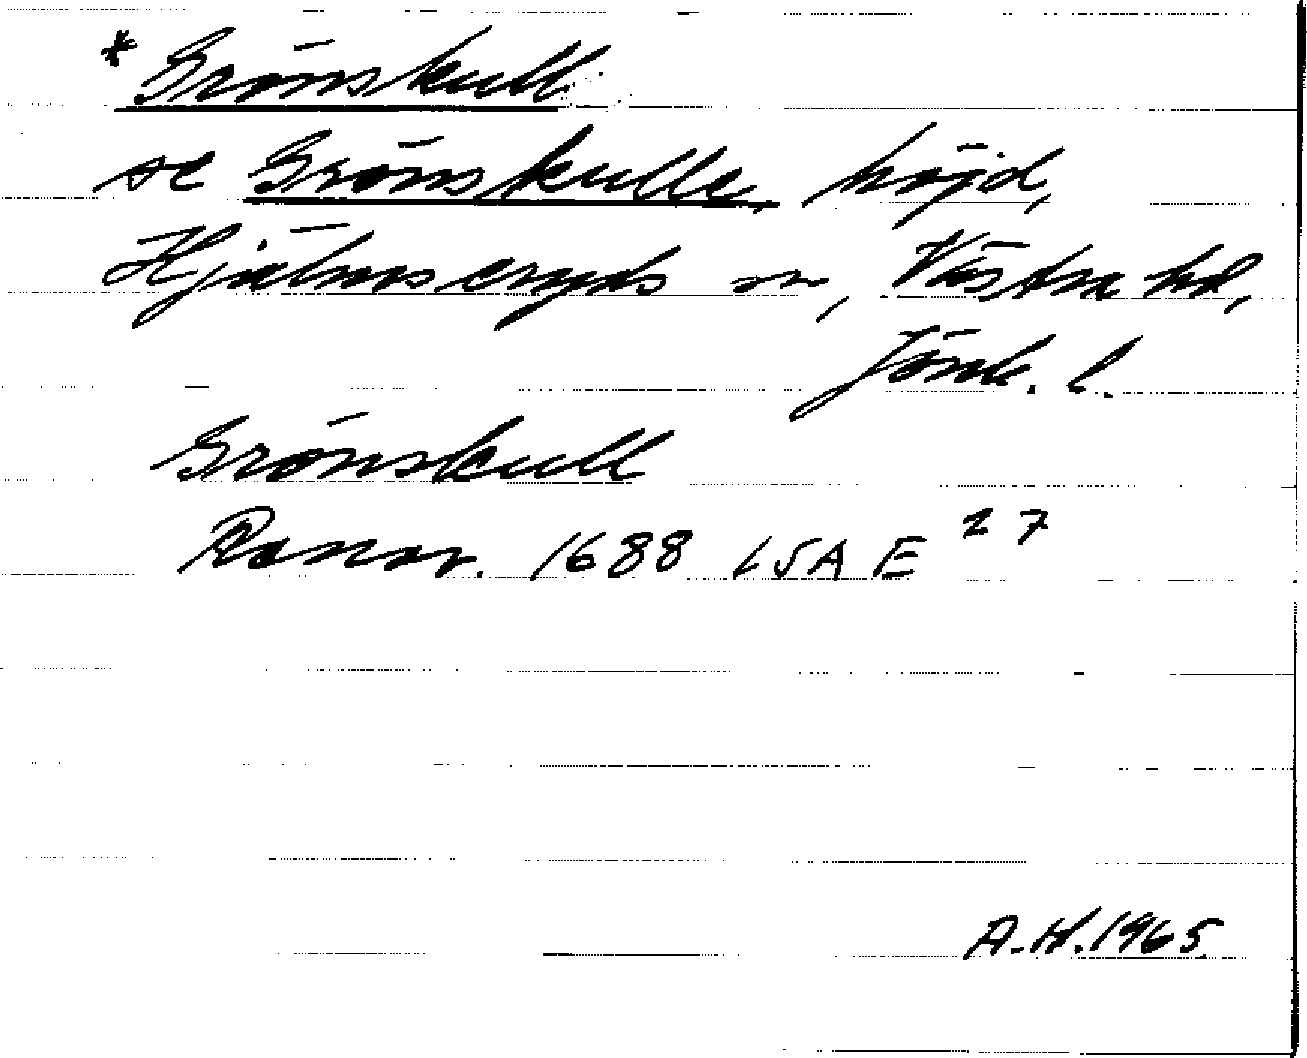 *Grönskull
se Grönskulle, höjd,
Hjälmseryds sn, Västra hd,
Jönk. l.
Grönskull
Rannr. 1688 LSA E 27
A.H. 1965.